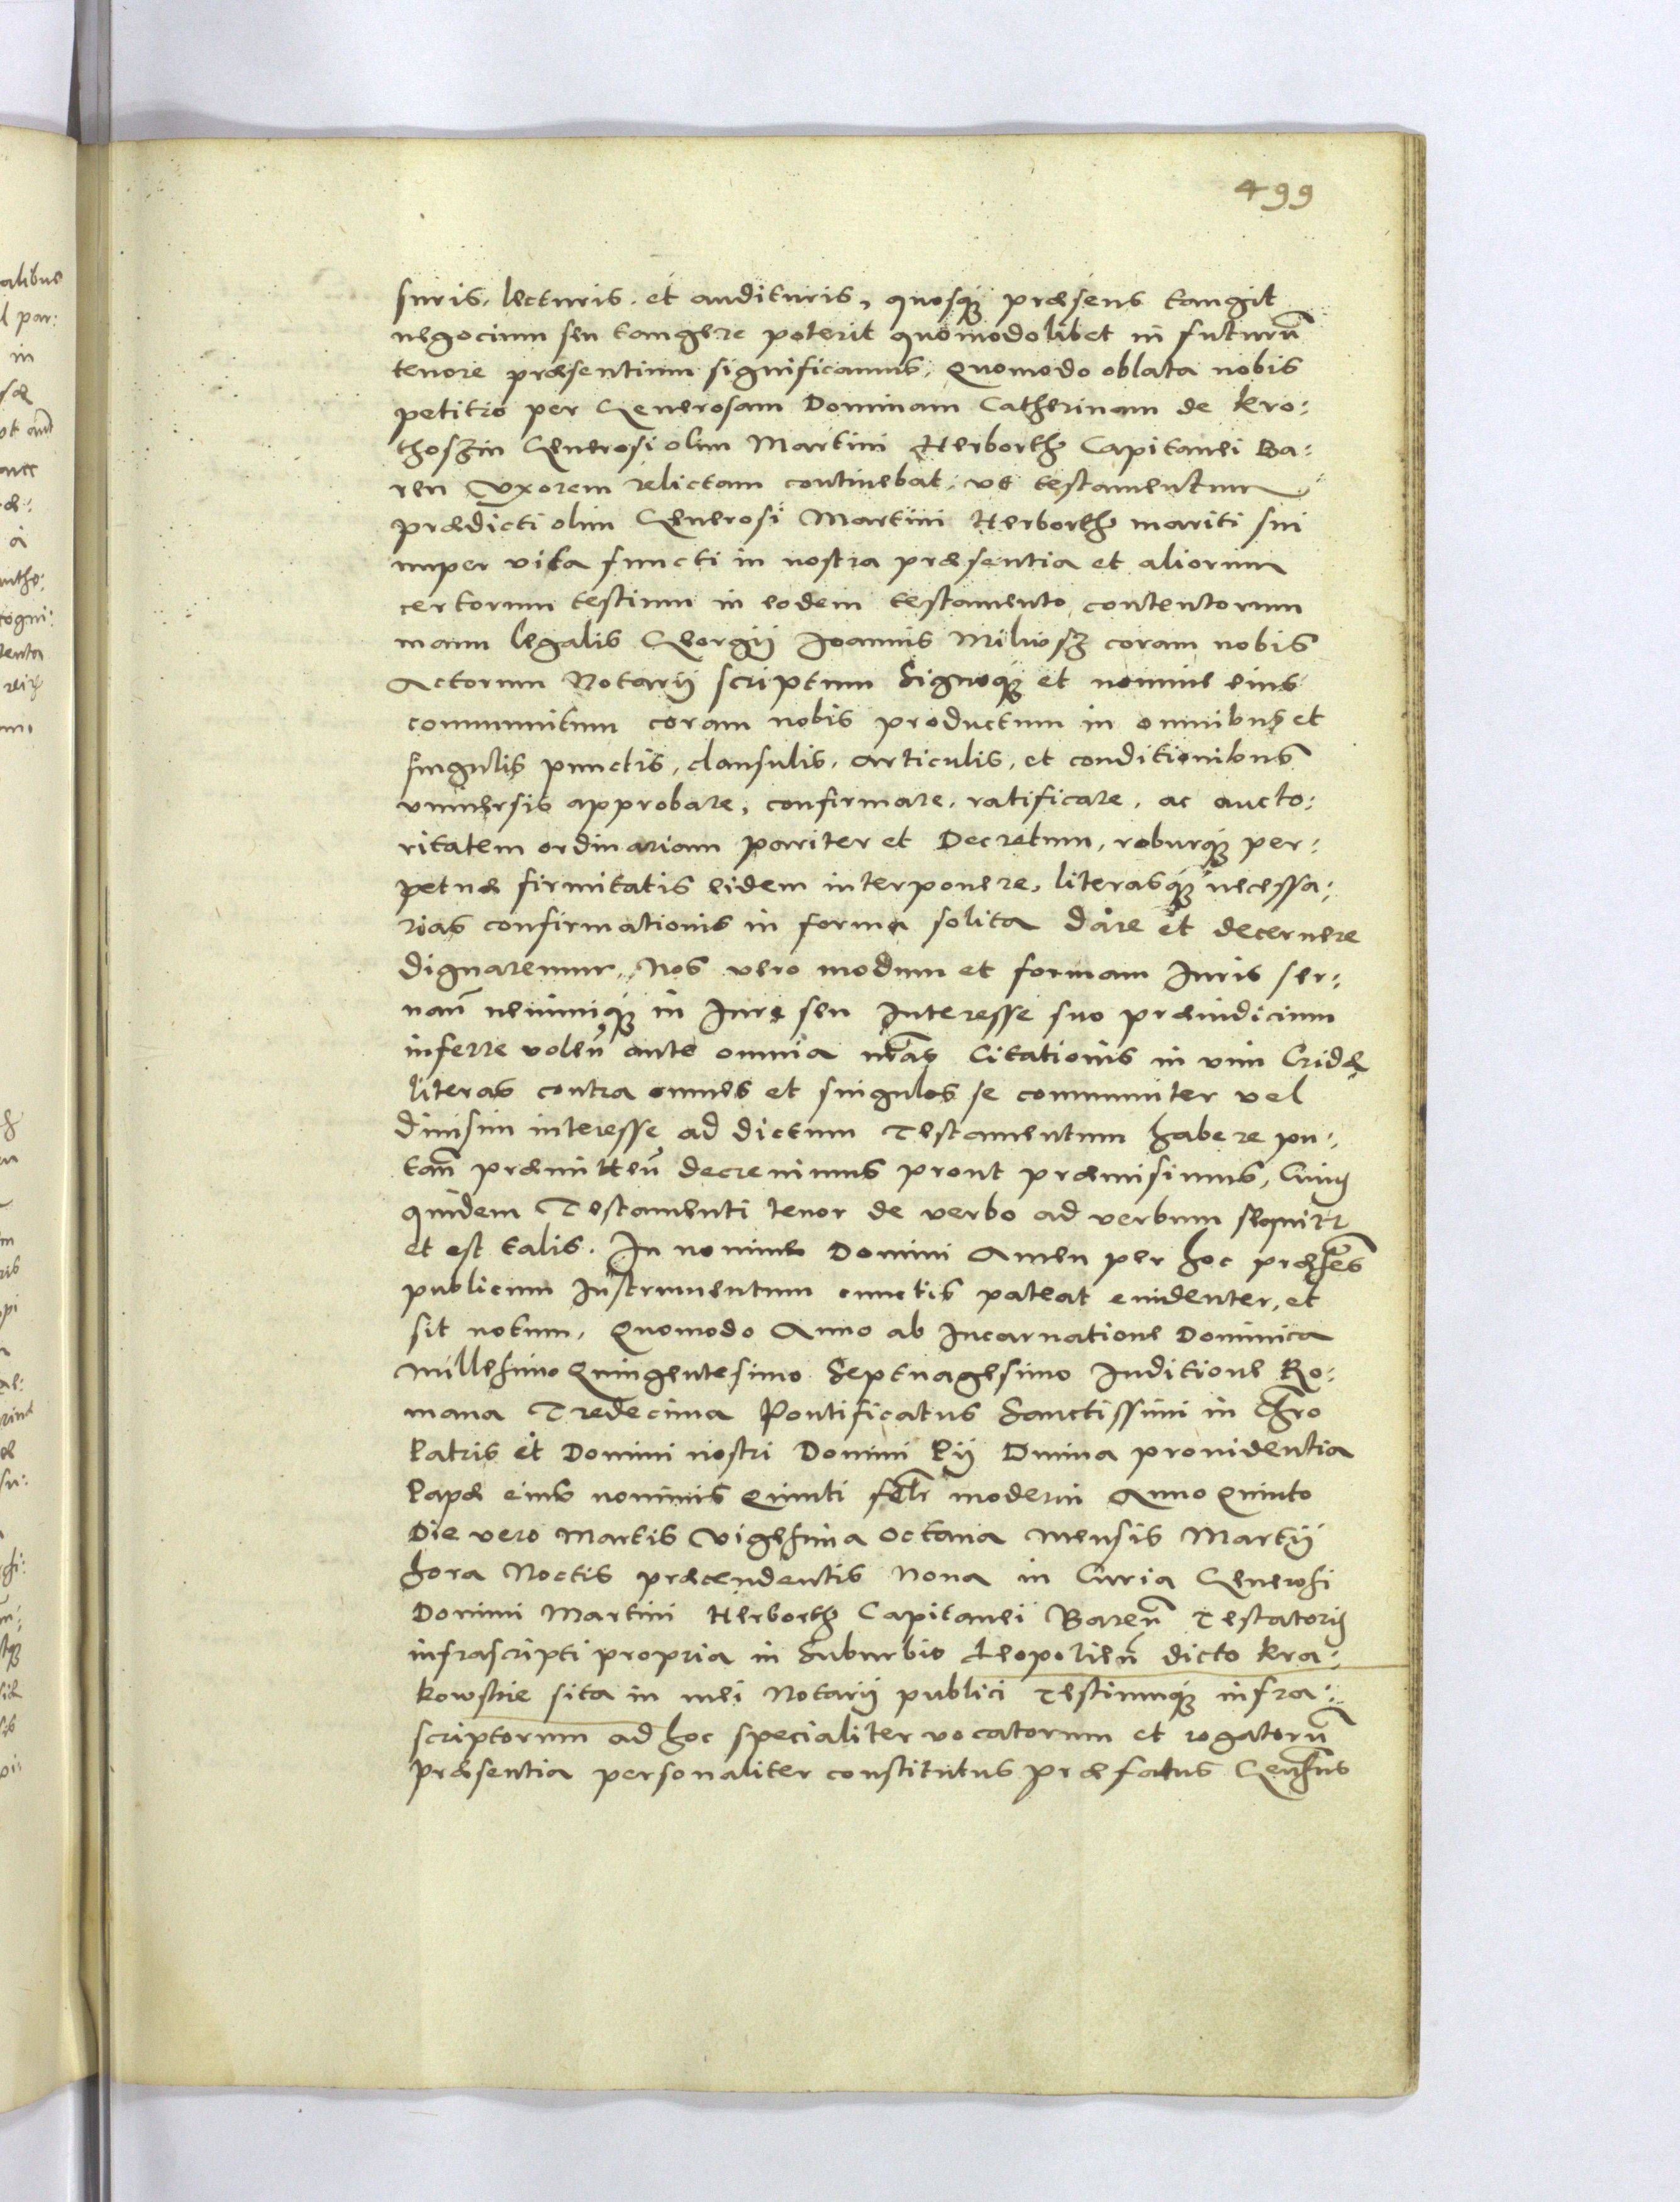 499
suris, lecturis, et audituris, quosq́ꝫ præsens tangit
negocium seu tangere poterit quomodolibet in futurū
tenore præsentium significamus, Quomodo oblata nobis
petitio per Generosam Dominam Catherinam de Kro:
thoszin Generosi olim Martini Herborth Capitanei Ba:
ren Vxorem relictam continebat, vt testamentum
prædicti olim Generosi Martini Herborth mariti sui
nuper vita functi in nostra præsentia et aliorum
certorum testium in eodem testamento contentorum
manu legalis Georgij Joannis Milwosz coram nobis
Actorum Notarij scriptum Signoqꝫ et nomine eius
communitum coram nobis productum in omnibus et
singulis punctis, clausulis, articulis, et conditionibus
vniuersis approbare, confirmare, ratificare, ac aucto:
ritatem ordinariam pariter et Decretum, roburqꝫ per:
petuæ firmitatis eidem interponere, literasqꝫ necessa:
rias confirmationis in forma solita dare et decernere
dignaremur, Nos vero modum et formam Iuris ser:
uan̄ neminiqꝫ in Iure seu Interesse suo præiudicium
inferre volen̄ ante omnia nr̄as Citationis in vim Cridæ
literas contra omnes et singulos se communiter vel
diuisim interesse ad dictum Testamentum habere pu:
tan̄ præmitten̄ decreuimus prout præmisimus, Cuius
quidem Testamenti tenor de verbo ad verbum sequitr
et est talis. In nomine Domini Amen per hoc præsēs
publicum Instrumentum cunctis pateat euidenter, et
sit notum, Quomodo Anno ab Incarnatione Dominica
Millesimo Quingentesimo Septuagesimo Inditione Ro:
mana Tredecima Pontificatus Sanctissimi in Chr̄o
Patris et Domini nostri Domini Pij Diuina prouidentia
Papæ eius nominis Quinti fel̄r moderni Anno Quinto
Die vero Martis Vigesima Octaua mensis Martij
hora Noctis præcendentis Nona in Curia Generosi
Domini Martini Herborth Capitanei Baren̄ Testatoris
infrascripti propria in Suburbio Leopolien̄ dicto Kra:
kowskie sita in mei Notarij publici Testiumqꝫ infra:
scriptorum ad hoc specialiter vocatorum et rogatorū
præsentia personaliter constitutus præfatus Gen̄sus